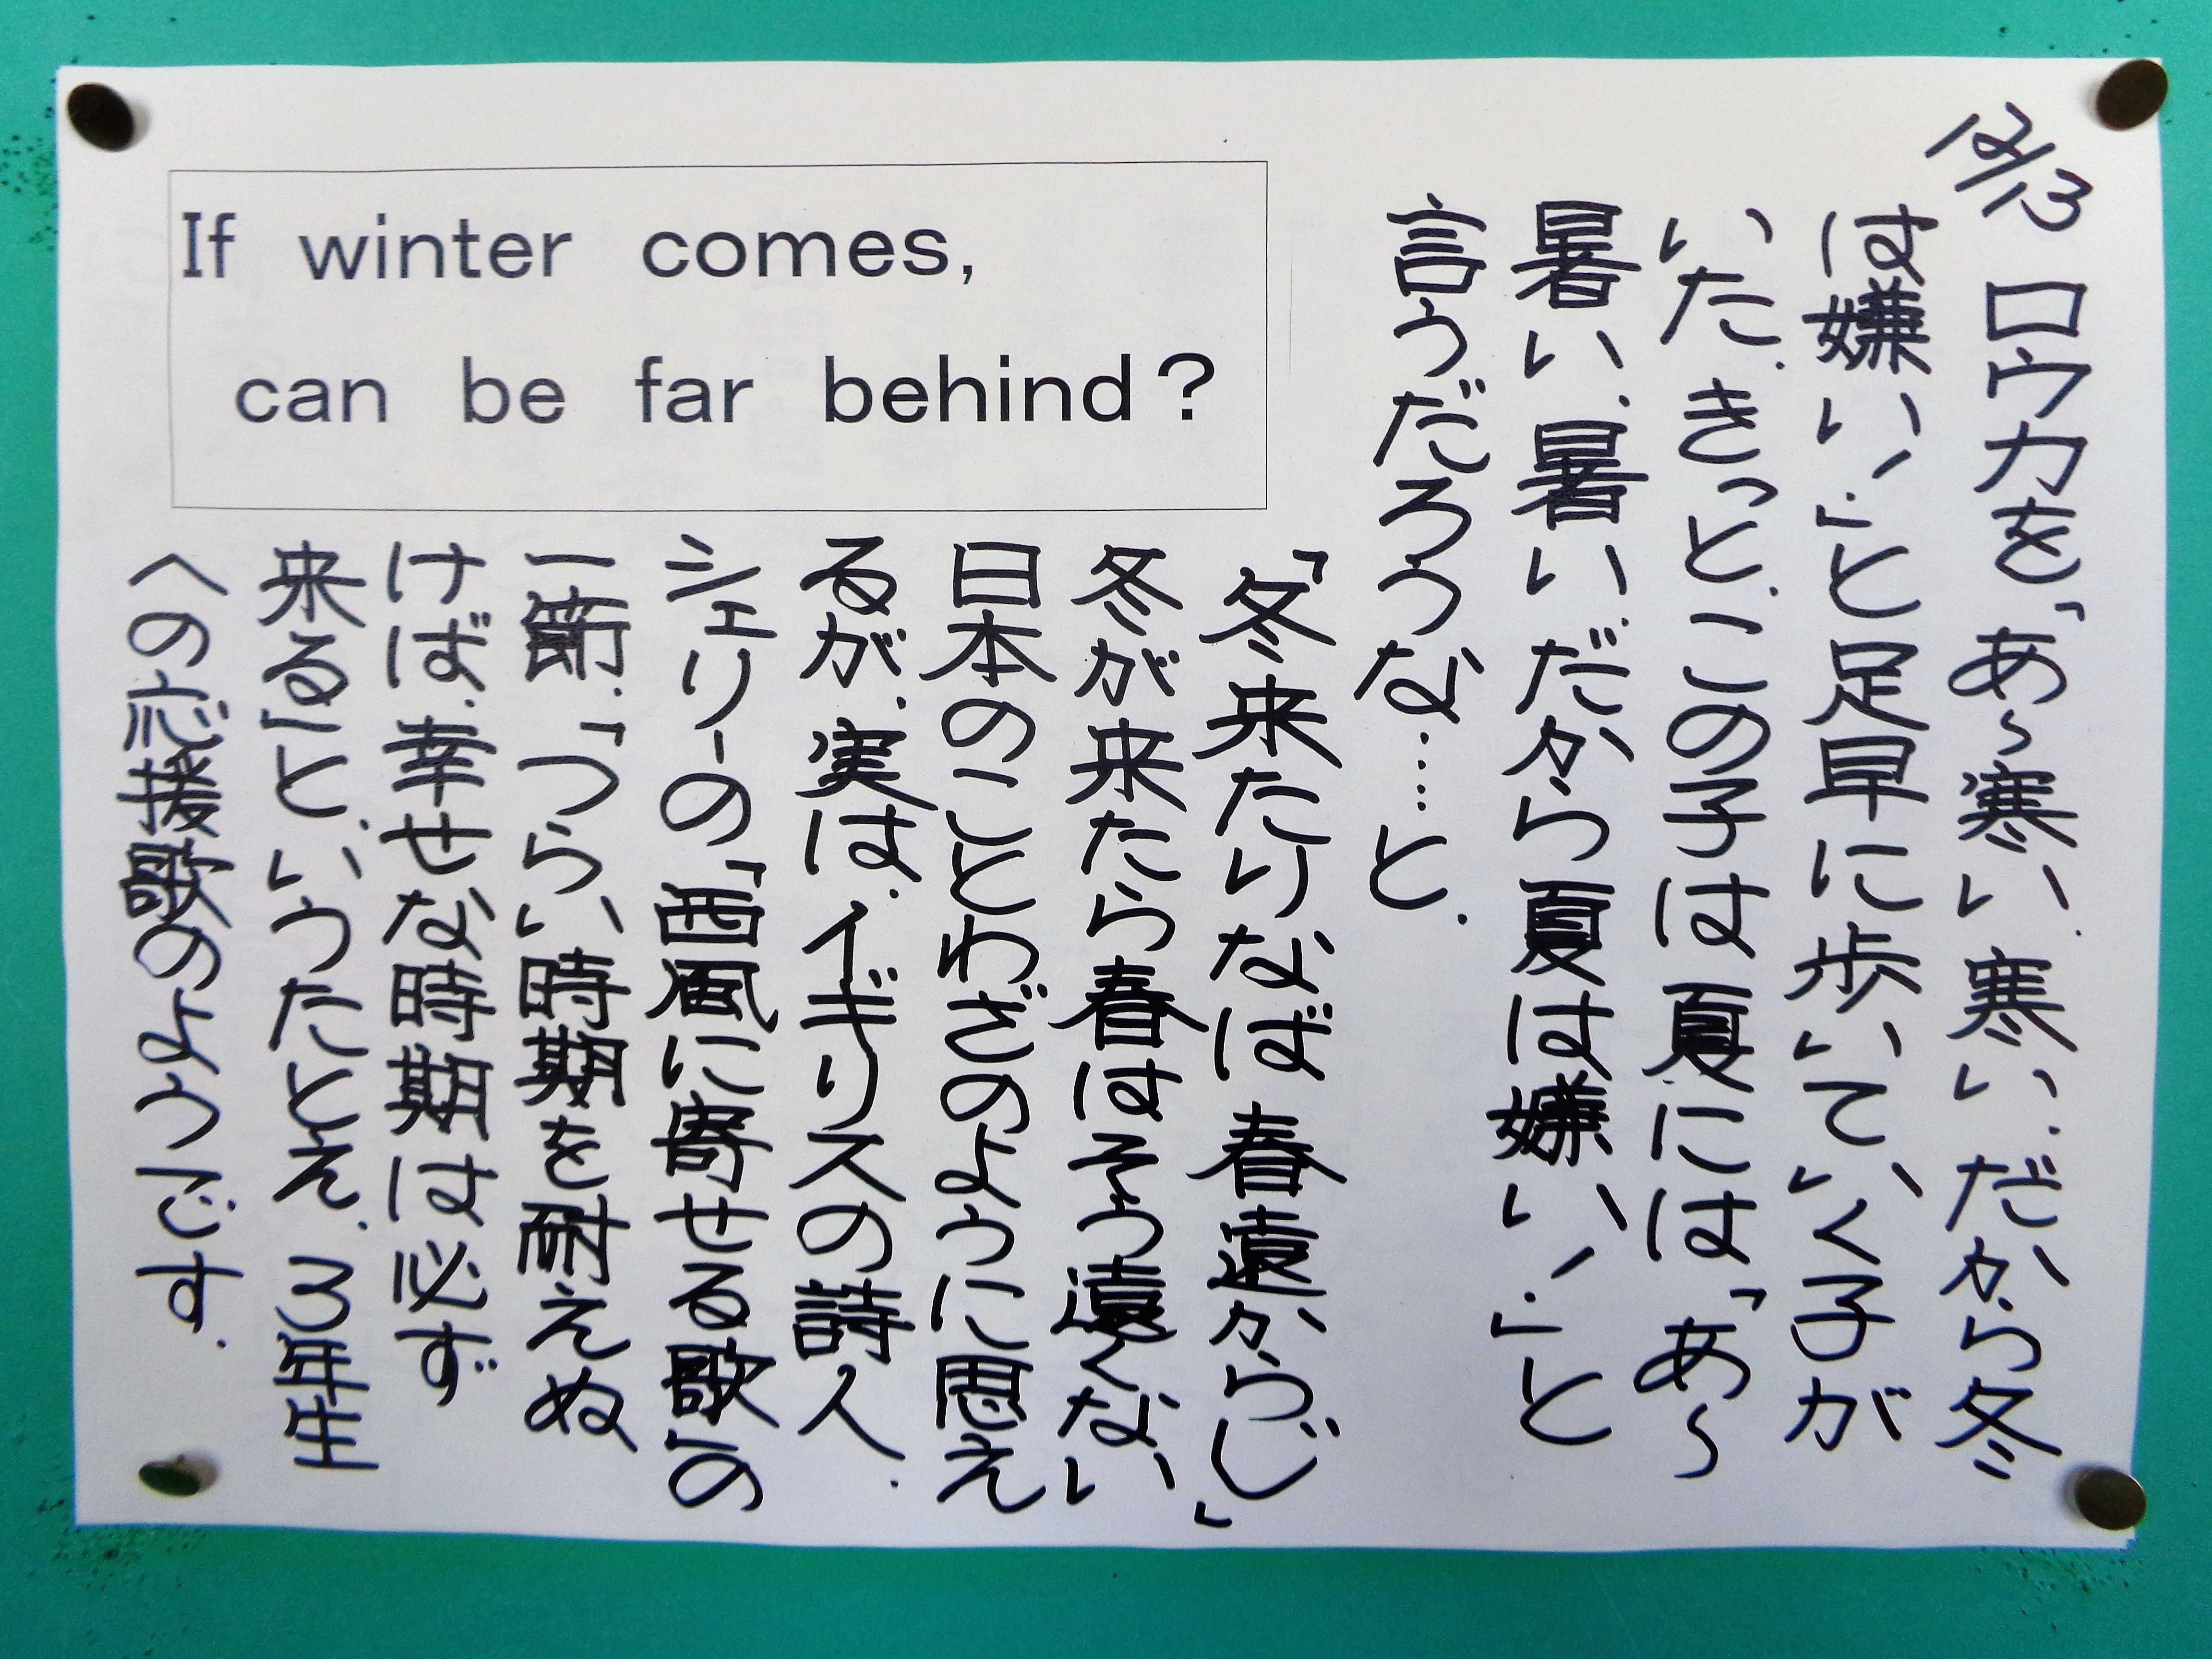 12/13 ロウカを、「あ〜寒い、寒い、だから冬
は嫌い!」と足早に歩いていく子が
いた。きっと、この子は夏には「あ〜
暑い、暑い、だから夏は嫌い!」と
言うだろうな……と。
If winter comes,
can be far behind?
「冬来たりなば春遠からじ」
冬が来たら春はそう遠くない
日本のことわざのように思え
るが、実は、イギリスの詩人
シェリーの「西風に寄せる歌」の
一節、「つらい時期を耐えぬ
けば、幸せな時期は必ず
来る」と、いうたとえ。3年生
への応援歌のようです。